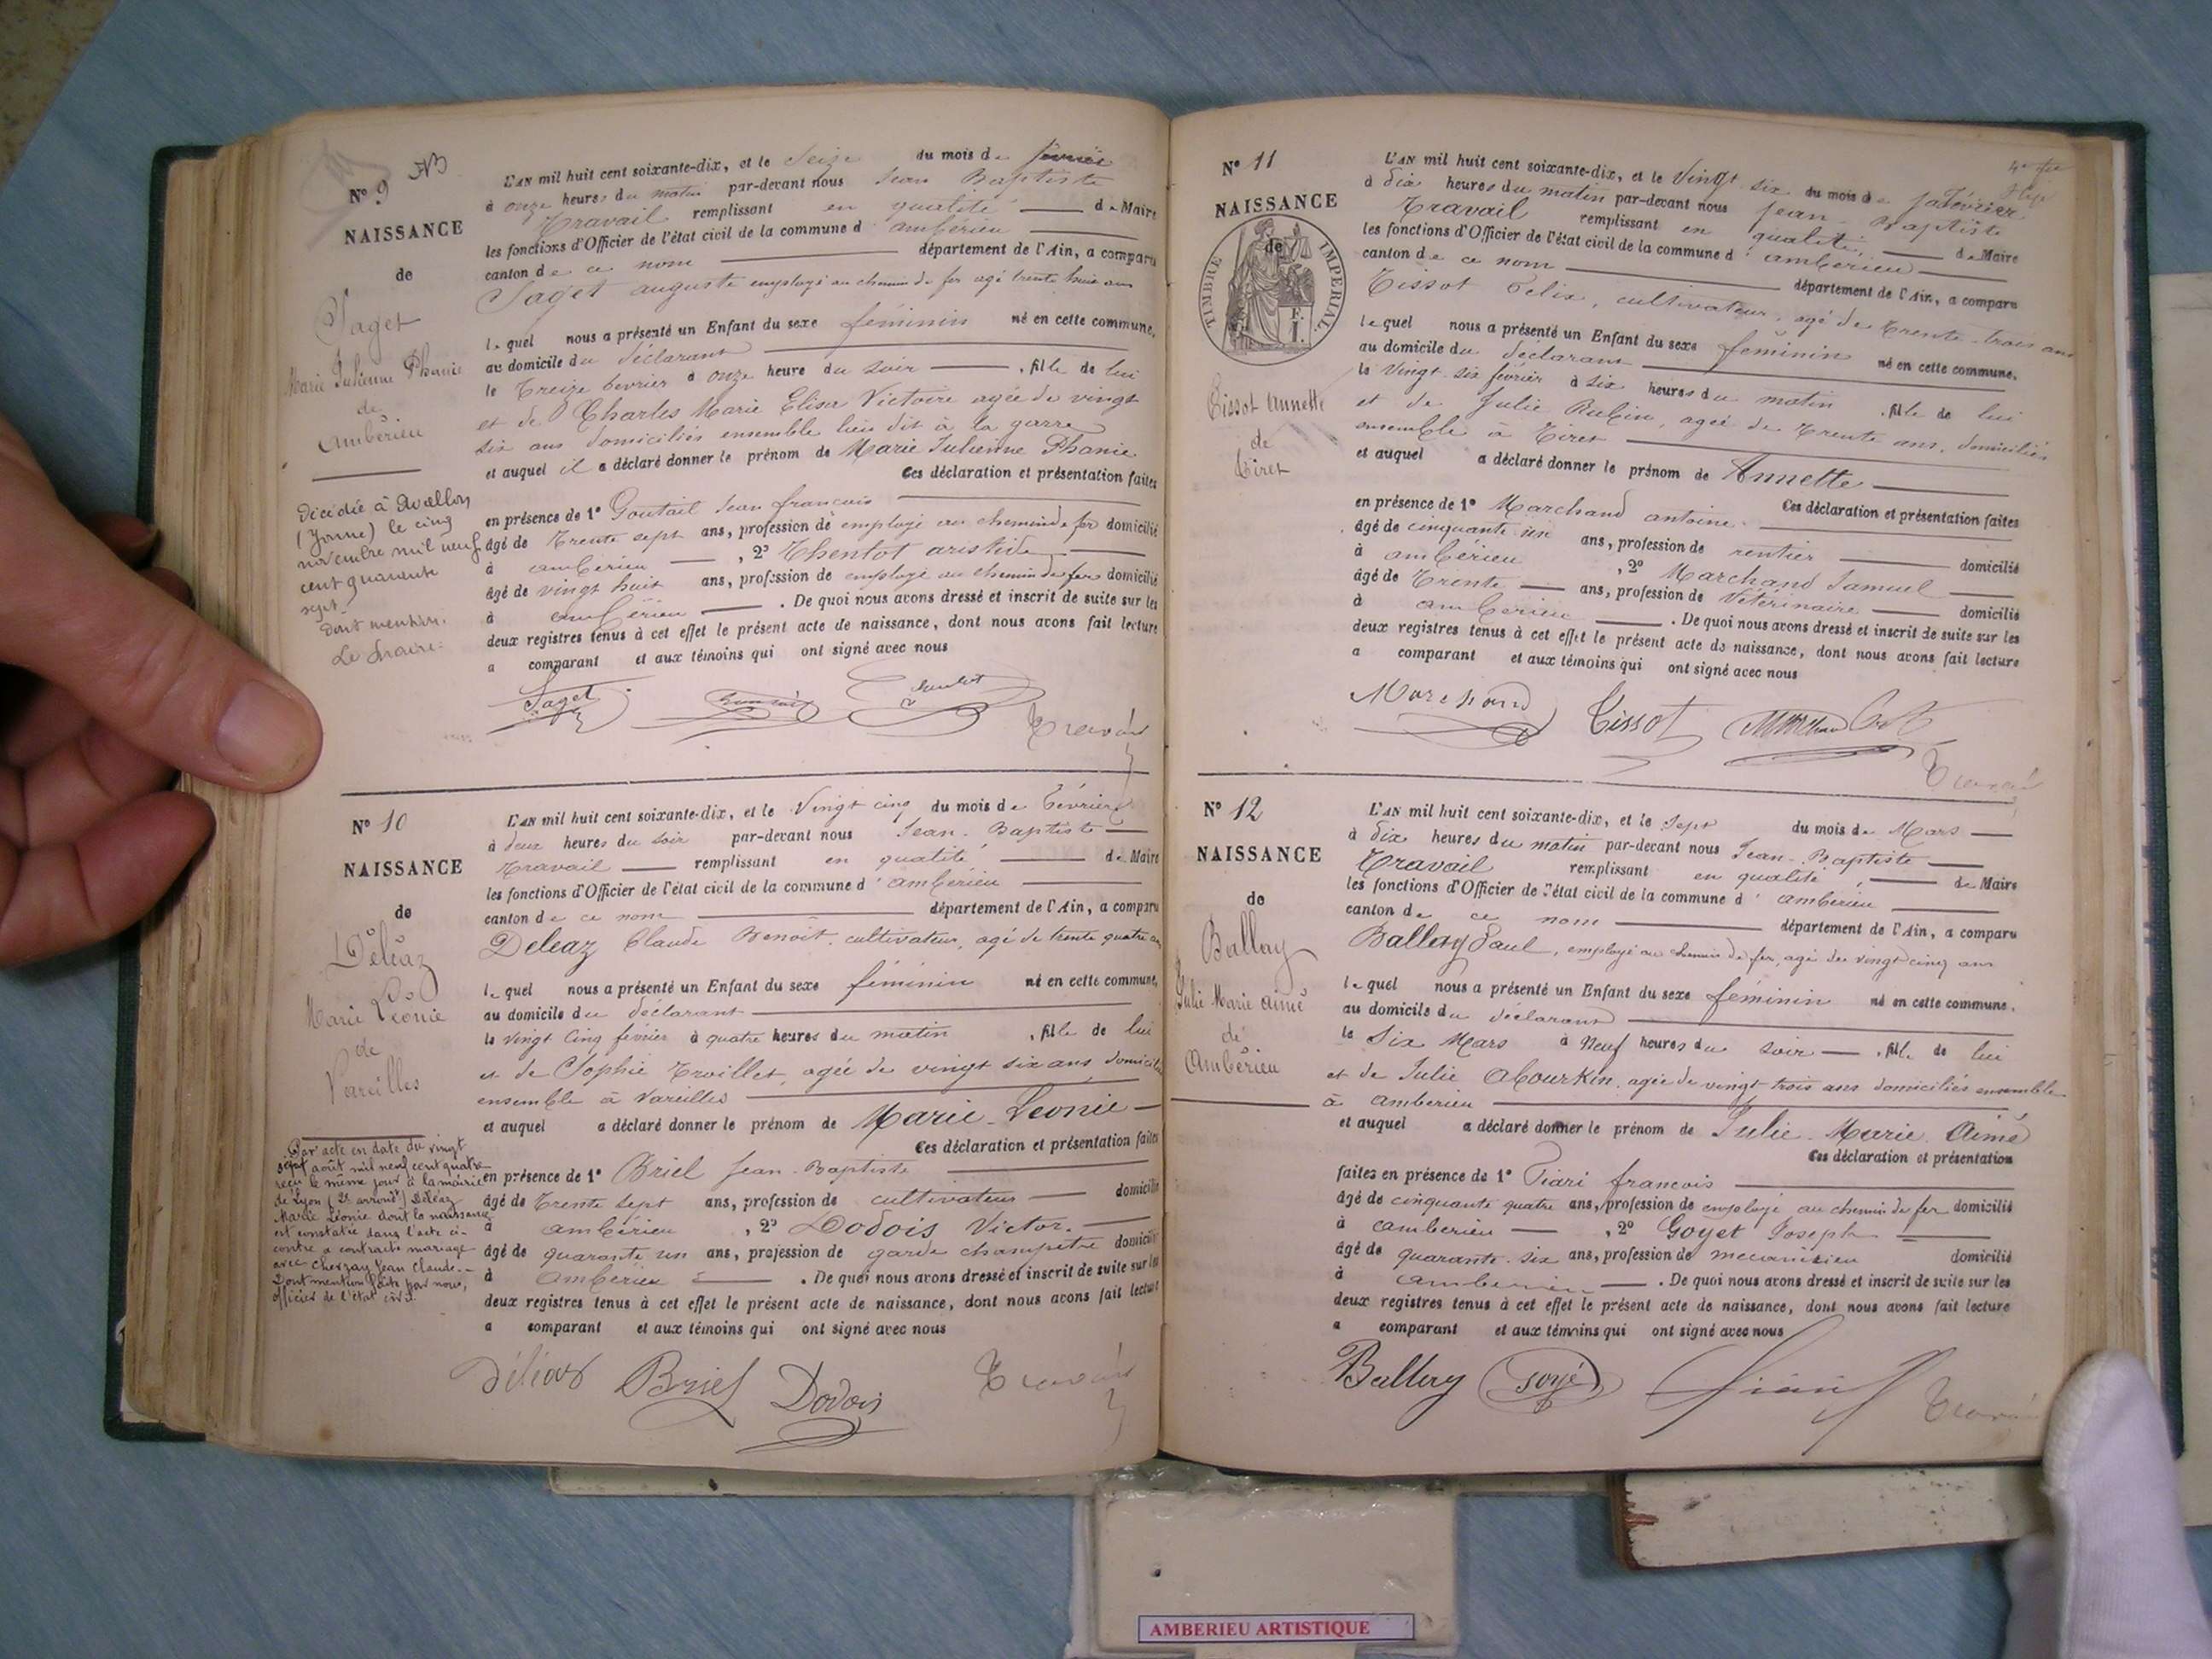 N° 9
NAISSANCE
de
Saget
Marie Julienne Phanie
de
Ambérieu
Décédée à Avallon
(Yonne) le cinq
novembre mil neuf
cent quarante
sept
Dont mention.
Le Maire:
L'AN mil huit cent soixante-dix, et le Seize du mois de février
à onze heures du matin par-devant nous Jean Baptiste
Travail remplissant en qualité de Maire
les fonctions d'Officier de l'état civil de la commune d'ambérieu
canton de ce nom département de l'Ain, a comparu
Saget auguste employé au chemin de fer agé trente huit ans
lequel nous a présenté un Enfant du sexe féminin né en cette commune,
au domicile du déclarant
le Treize fevrier à onze heure du soir , fille de lui
et de Charles Marie Elisa Victoire agée de vingt
six ans domiciliés ensemble lieu dit à la garre
et auquel il a déclaré donner le prénom de Marie Julienne Phanie
Ces déclaration et présentation faites
en présence de 1° Goutail Jean francois
âgé de Trente sept ans, profession de employé au chemin de fer domicilié
à ambérieu , 2° Thentot aristide
âgé de vingt huit ans, profession de employé au chemin de fer domicilié
à ambérieu . De quoi nous avons dressé et inscrit de suite sur les
deux registres tenus à cet effet le présent acte de naissance, dont nous avons fait lecture
a comparant et aux témoins qui ont signé avec nous
Saget
Travail
N° 10
NAISSANCE
de
Déléaz
Marie Léonie
de
Vareilles
Par acte en date du vingt
sept août mil neuf cent quatre
reçu le même jour à la mairie
de Lyon (2e arrondt) Déléaz
Marie Léonie dont la naissance
est constatée dans l'acte ci-
contre a contracté mariage
avec Cherzay Jean Claude.-
Dont mention faite par nous,
officier de l'état civil.
L'AN mil huit cent soixante-dix, et le Vingt cinq du mois de Février
à deux heures du soir par-devant nous Jean-Baptiste
Travail remplissant en qualité de Maire
les fonctions d'Officier de l'état civil de la commune d'ambérieu
canton de ce nom département de l'Ain, a comparu
Deleaz Claude Benoit, cultivateur, agé de trente quatre ans
lequel nous a présenté un Enfant du sexe féminin né en cette commune,
au domicile du déclarant
le vingt cinq février à quatre heures du matin , fille de lui
et de Sophie Trvillet, agée de vingt six ans domiciliés
ensemble à Vareilles
et auquel a déclaré donner le prénom de Marie-Léonie
Ces déclaration et présentation faites
en présence de 1° Briel Jean-Baptiste
âgé de Trente sept ans, profession de cultivateur domicilié
à ambérieu , 2° Dodois Victor.
âgé de quarante un ans, profession de garde champetre domicilié
à Ambérieu . De quoi nous avons dressé et inscrit de suite sur les
deux registres tenus à cet effet le présent acte de naissance, dont nous avons fait lecture
a comparant et aux témoins qui ont signé avec nous
Déléaz Briel Dodois Travail
N° 11
NAISSANCE
de
TIMBRE IMPERIAL
Tissot Annette
de
Tiret
L'AN mil huit cent soixante-dix, et le Vingt six du mois de février
à dix heures du matin par-devant nous Jean-Baptiste
Travail remplissant en qualité de Maire
les fonctions d'Officier de l'état civil de la commune d'ambérieu
canton de ce nom département de l'Ain, a comparu
Tissot Felix, cultivateur, agé de Trente-trois ans
lequel nous a présenté un Enfant du sexe féminin né en cette commune,
au domicile du déclarant
le Vingt-six février à six heures du matin , fille de lui
et de Julie Rubin, agée de Trente ans, domiciliés
ensemble à Tiret
et auquel a déclaré donner le prénom de Annette
Ces déclaration et présentation faites
en présence de 1° Marchand antoine
âgé de cinquante-un ans, profession de rentier domicilié
à ambérieu , 2° Marchand Samuel
âgé de Trente ans, profession de Vétérinaire domicilié
à ambérieu . De quoi nous avons dressé et inscrit de suite sur les
deux registres tenus à cet effet le présent acte de naissance, dont nous avons fait lecture
a comparant et aux témoins qui ont signé avec nous
Marchand Tissot Marchand
Travail
N° 12
NAISSANCE
de
Ballay
Julie Marie Aimé
de
Ambérieu
L'AN mil huit cent soixante-dix, et le Sept du mois de Mars
à Dix heures du matin par-devant nous Jean-Baptiste
Travail remplissant en qualité de Maire
les fonctions d'Officier de l'état civil de la commune d'ambérieu
canton de ce nom département de l'Ain, a comparu
Ballay Paul, employé au chemin de fer, agé de vingt cinq ans
lequel nous a présenté un Enfant du sexe féminin né en cette commune.
au domicile du déclarant
le Six Mars à Neuf heures du soir , fille de lui
et de Julie Abourkin, agée de vingt trois ans domiciliés ensemble
à Amberieu
et auquel a déclaré donner le prénom de Julie-Marie Aimé
Ces déclaration et présentation
faites en présence de 1° Piari francois
âgé de cinquante quatre ans, profession de employé au chemin de fer domicilié
à amberieu , 2° Goyet Joseph
âgé de quarante-six ans, profession de mecanicien domicilié
à amberieu . De quoi nous avons dressé et inscrit de suite sur les
deux registres tenus à cet effet le présent acte de naissance, dont nous avons fait lecture
a comparant et aux témoins qui ont signé avec nous
Ballay Goyé Travail
AMBERIEU ARTISTIQUE